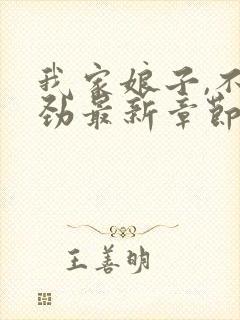 我家娘子,不
劲最新章节
王善明